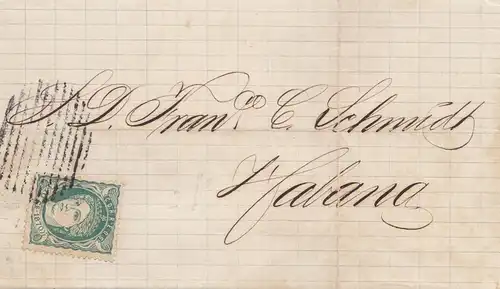 S. D. Fran.co C. Schmidt
Habana